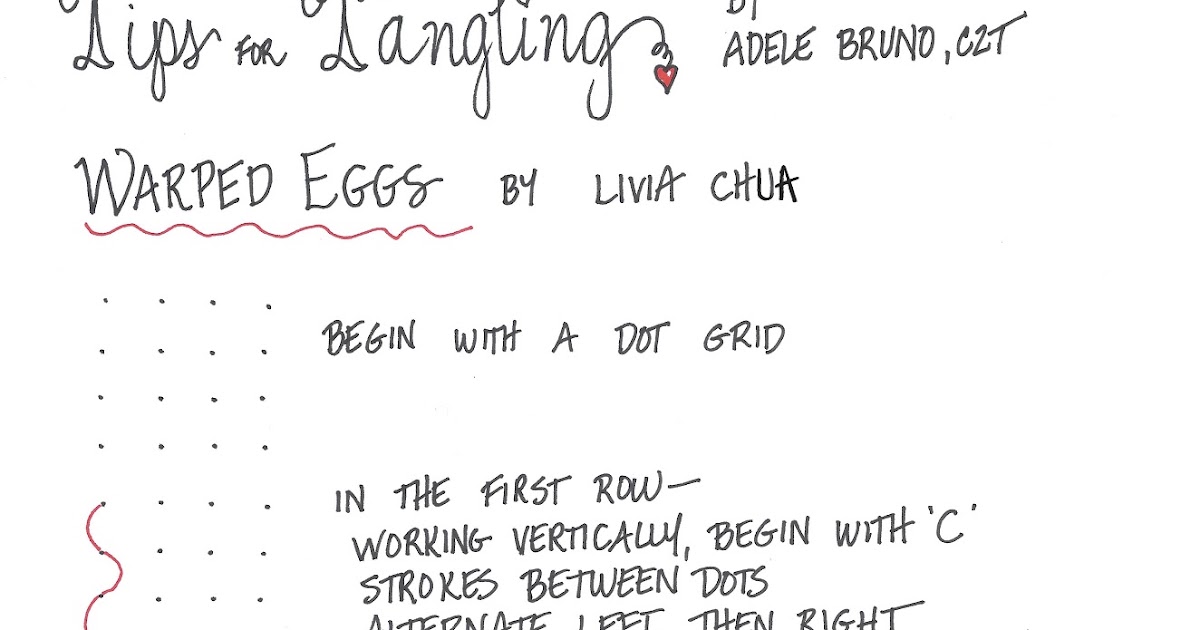 Tips FOR Tangling BY
ADELE BRUNO, CZT
WARPED EGGS BY LIVIA CHUA
BEGIN WITH A DOT GRID
IN THE FIRST ROW—
WORKING VERTICALLY, BEGIN WITH 'C'
STROKES BETWEEN DOTS
ALTERNATE LEFT THEN RIGHT